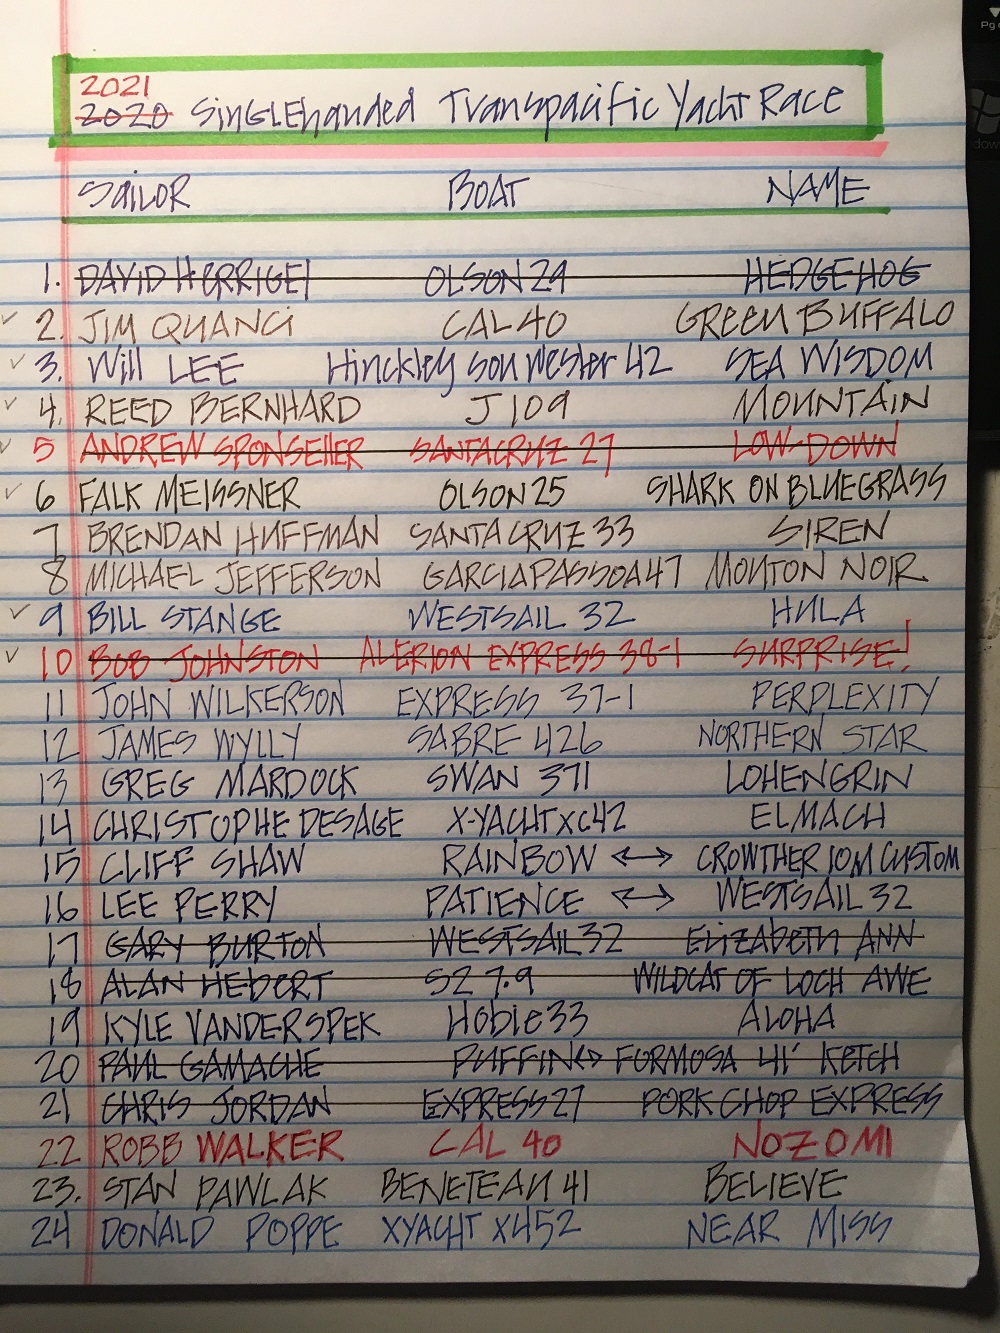 2021
2020 Singlehanded Transpacific Yacht Race
Sailor BOAT NAME
1. DAVID HERRIGEL OLSON 29 HEDGEHOG
2. JIM QUANCI CAL 40 GREEN BUFFALO
3. Will LEE Hinckley Sou Wester 42 SEA WISDOM
4. REED BERNHARD J109 MOUNTAIN
5 ANDREW SPONSELLER SANTACRUZ 27 LOW-DOWN
6 FALK MEISSNER OLSON 25 SHARK ON BLUEGRASS
7 BRENDAN HUFFMAN SANTACRUZ 33 SIREN
8 MICHAEL JEFFERSON GARCIA PASSOA 47 MOUTON NOIR
9 BILL STANGE WESTSAIL 32 HULA
10 BOB JOHNSTON ALERION EXPRESS 38-1 SURPRISE!
11 JOHN WILKERSON EXPRESS 37-1 PERPLEXITY
12 JAMES WYLLY SABRE 426 NORTHERN STAR
13 GREG MARDOCK SWAN 371 LOHENGRIN
14 CHRISTOPHE DESAGE X-YACHT XC42 ELMACH
15 CLIFF SHAW RAINBOW <-> CROWTHER 10M CUSTOM
16 LEE PERRY PATIENCE <-> WESTSAIL 32
17 GARY BURTON WESTSAIL 32 Elizabeth ANN
18 ALAN HEbERT S2 7.9 WILDCAT OF LOCH AWE
19 KYLE VANDERSPEK Hobie 33 ALOHA
20 PAUL GAMACHE PUFFIN <> FORMOSA 41' KETCH
21 CHRIS JORDAN EXPRESS 27 PORK CHOP EXPRESS
22 ROBB WALKER CAL 40 NOZOMI
23. STAN PAWLAK BENETEAU 41 BELIEVE
24 DONALD POPPE XYACHT X452 NEAR MISS
Pg